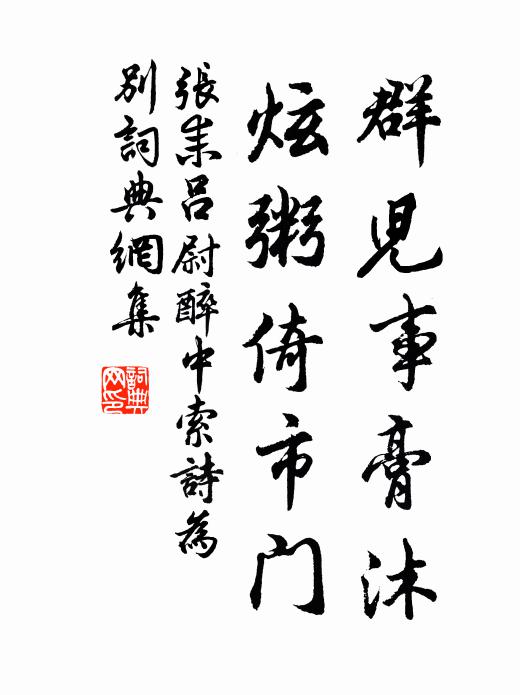 群児事膏沐
炫粥倚市門
張耒呂尉醉中索詩為
別詞典網集
詞典
网印